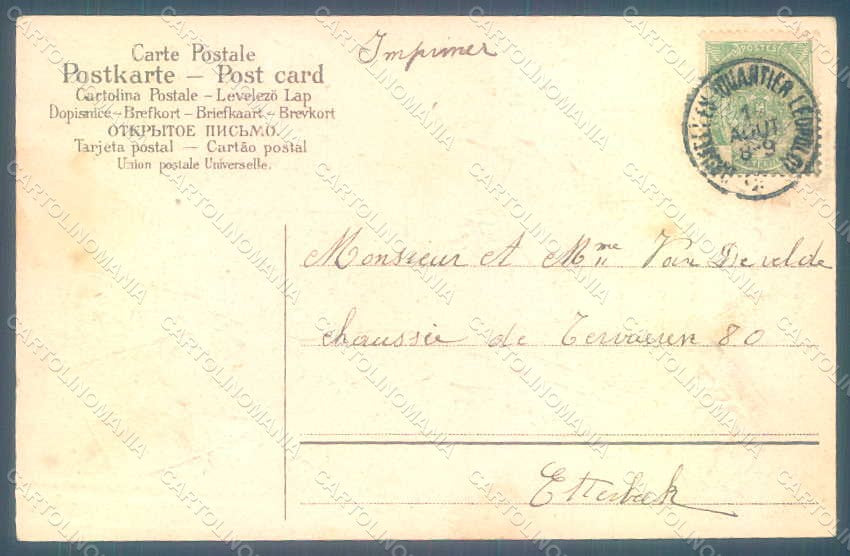 Carte Postale
Postkarte – Post card
Cartolina Postale – Levelező Lap
Dopisnice – Brefkort – Briefkaart – Brevkort
ОТКРЫТОЕ ПИСЬМО.
Tarjeta postal – Cartão postal
Union postale Universelle.
Imprimer
POSTES
QUARTIER LÉOPOLD
1
AOUT
8-9
Monsieur et Mme Van De velde
chaussée de Tervueren 80
Etterbeek
CARTOLINOMANIA